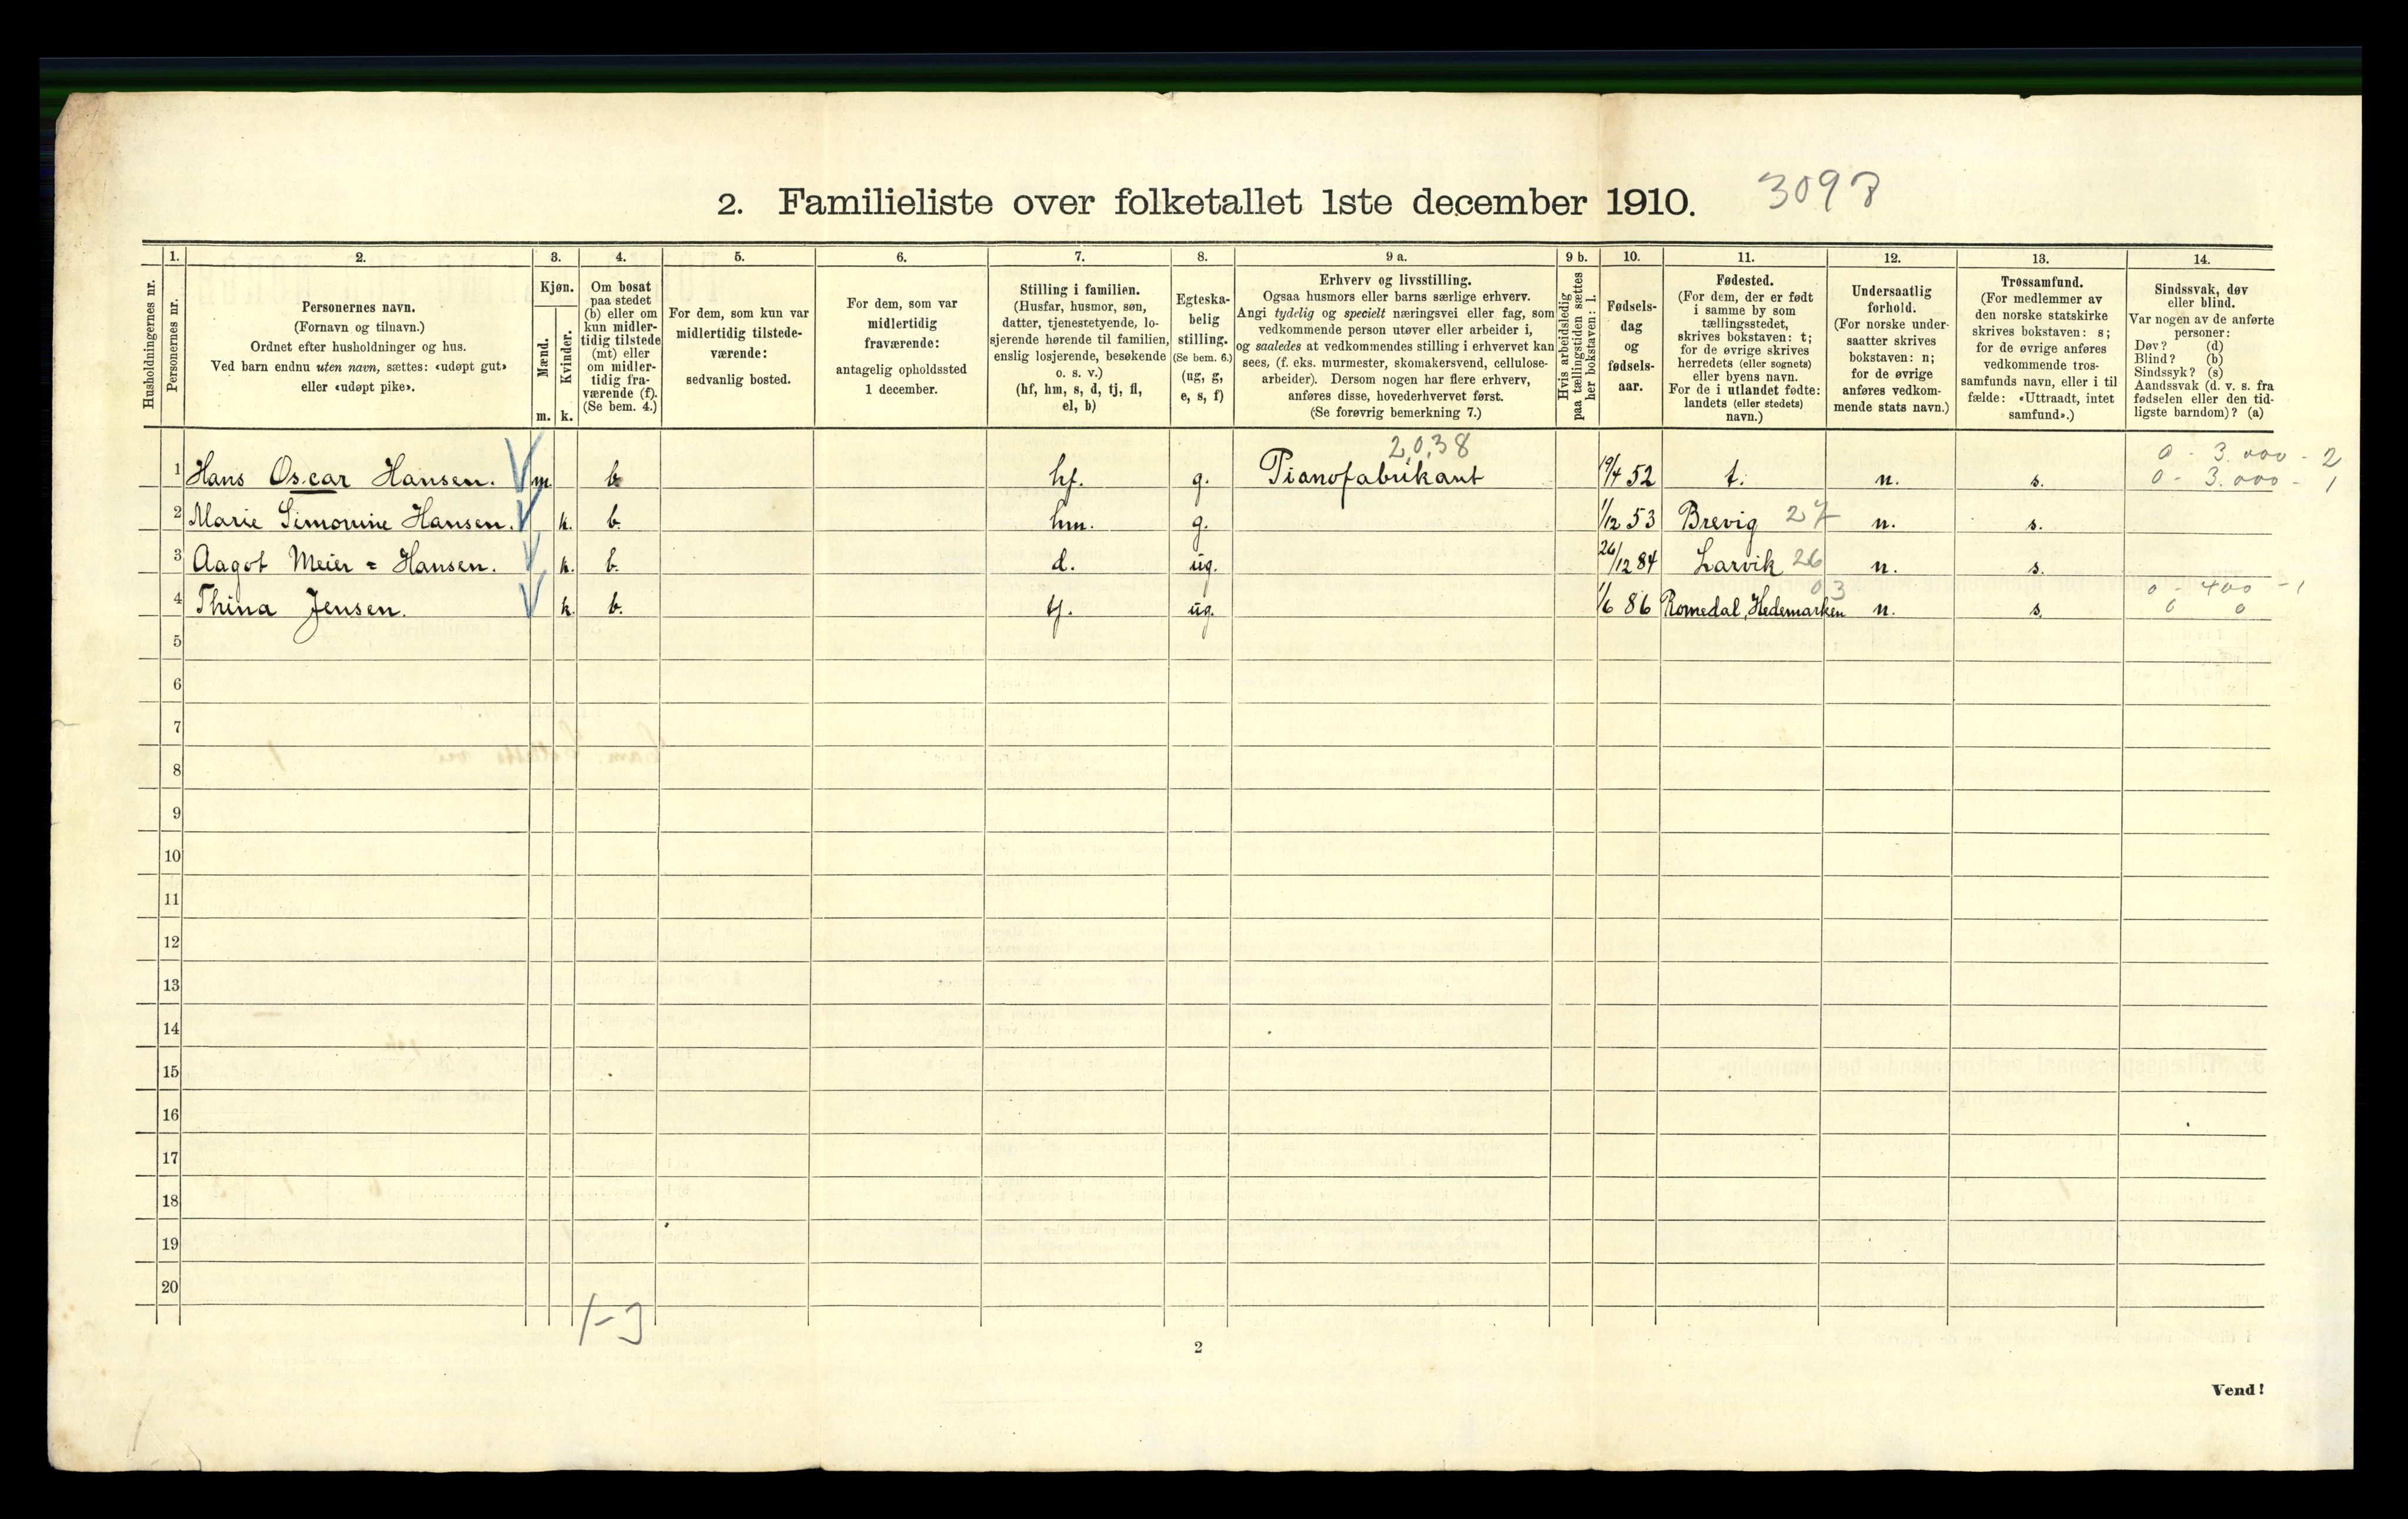 2. Familieliste over folketallet 1ste december 1910. 3098
Husholdningernes nr.
1. Personernes nr.
2. Personernes navn. (Fornavn og tilnavn.) Ordnet efter husholdninger og hus. Ved barn endnu uten navn, sættes: «udøpt gut» eller «udøpt pike».
3. Kjøn. Mænd. m. Kvinder. k.
4. Om bosat paa stedet (b) eller om kun midlertidig tilstede (mt) eller om midlertidig fraværende (f). (Se bem. 4.)
5. For dem, som kun var midlertidig tilstedeværende: sedvanlig bosted.
6. For dem, som var midlertidig fraværende: antagelig opholdssted 1 december.
7. Stilling i familien. (Husfar, husmor, søn, datter, tjenestetyende, losjerende hørende til familien, enslig losjerende, besøkende o. s. v.) (hf, hm, s, d, tj, fl, el, b)
8. Egteskabelig stilling. (Se bem. 6.) (ug, g, e, s, f)
9 a. Erhverv og livsstilling. Ogsaa husmors eller barns særlige erhverv. Angi tydelig og specielt næringsvei eller fag, som vedkommende person utøver eller arbeider i, og saaledes at vedkommendes stilling i erhvervet kan sees, (f. eks. murmester, skomakersvend, cellulosearbeider). Dersom nogen har flere erhverv, anføres disse, hovederhvervet først. (Se forøvrig bemerkning 7.)
9 b. Hvis arbeidsledig paa tællingstiden sættes her bokstaven: l.
10. Fødselsdag og fødselsaar.
11. Fødested. (For dem, der er født i samme by som tællingsstedet, skrives bokstaven: t; for de øvrige skrives herredets (eller sognets) eller byens navn. For de i utlandet fødte: landets (eller stedets) navn.)
12. Undersaatlig forhold. (For norske undersaatter skrives bokstaven: n; for de øvrige anføres vedkommende stats navn.)
13. Trossamfund. (For medlemmer av den norske statskirke skrives bokstaven: s; for de øvrige anføres vedkommende trossamfunds navn, eller i tilfælde: «Uttraadt, intet samfund».)
14. Sindssvak, døv eller blind. Var nogen av de anførte personer: Døv? (d) Blind? (b) Sindssyk? (s) Aandssvak (d. v. s. fra fødselen eller den tidligste barndom)? (a)
2,0,38 0 - 3.000 - 2
1 Hans Oscar Hansen. m. b. hf. g. Pianofabrikant 19/4 52 t. n. s. 0 - 3.000 - 1
2 Marie Simonine Hansen. k. b. hm. g. 1/12 53 Brevig 27 n. s.
3 Aagot Meier = Hansen. k. b. d. ug. 26/12 84 Larvik 26 n. s.
03 0 - 400 - 1
4 Thina Jensen. k. b. tj. ug. 1/6 86 Romedal, Hedemarken n. s. 0 0
5
6
7
8
9
10
11
12
13
14
15
16
17
18
19
20
1-3
2
Vend!